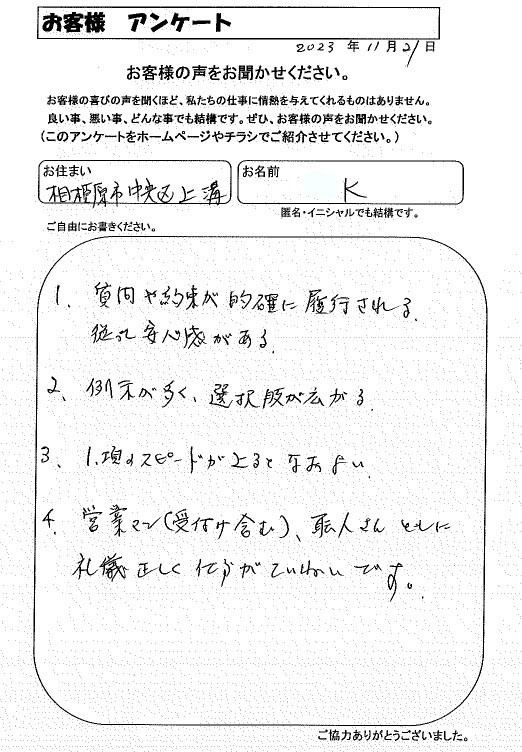 お客様 アンケート
2023 年 11月 21日
お客様の声をお聞かせください。
お客様の喜びの声を聞くほど、私たちの仕事に情熱を与えてくれるものはありません。
良い事、悪い事、どんな事でも結構です。ぜひ、お客様の声をお聞かせください。
(このアンケートをホームページやチラシでご紹介させてください。)
お住まい
相模原市中央区上溝
お名前
K
匿名・イニシャルでも結構です。
ご自由にお書きください。
1、質問や約束が的確に履行される。
従って安心感がある。
2、例示が多く、選択肢が広がる。
3、1.項のスピードが上るとなおよい。
4、営業マン(受付け含む)、職人さんともに
礼儀正しく仕事がていねいです。
ご協力ありがとうございました。